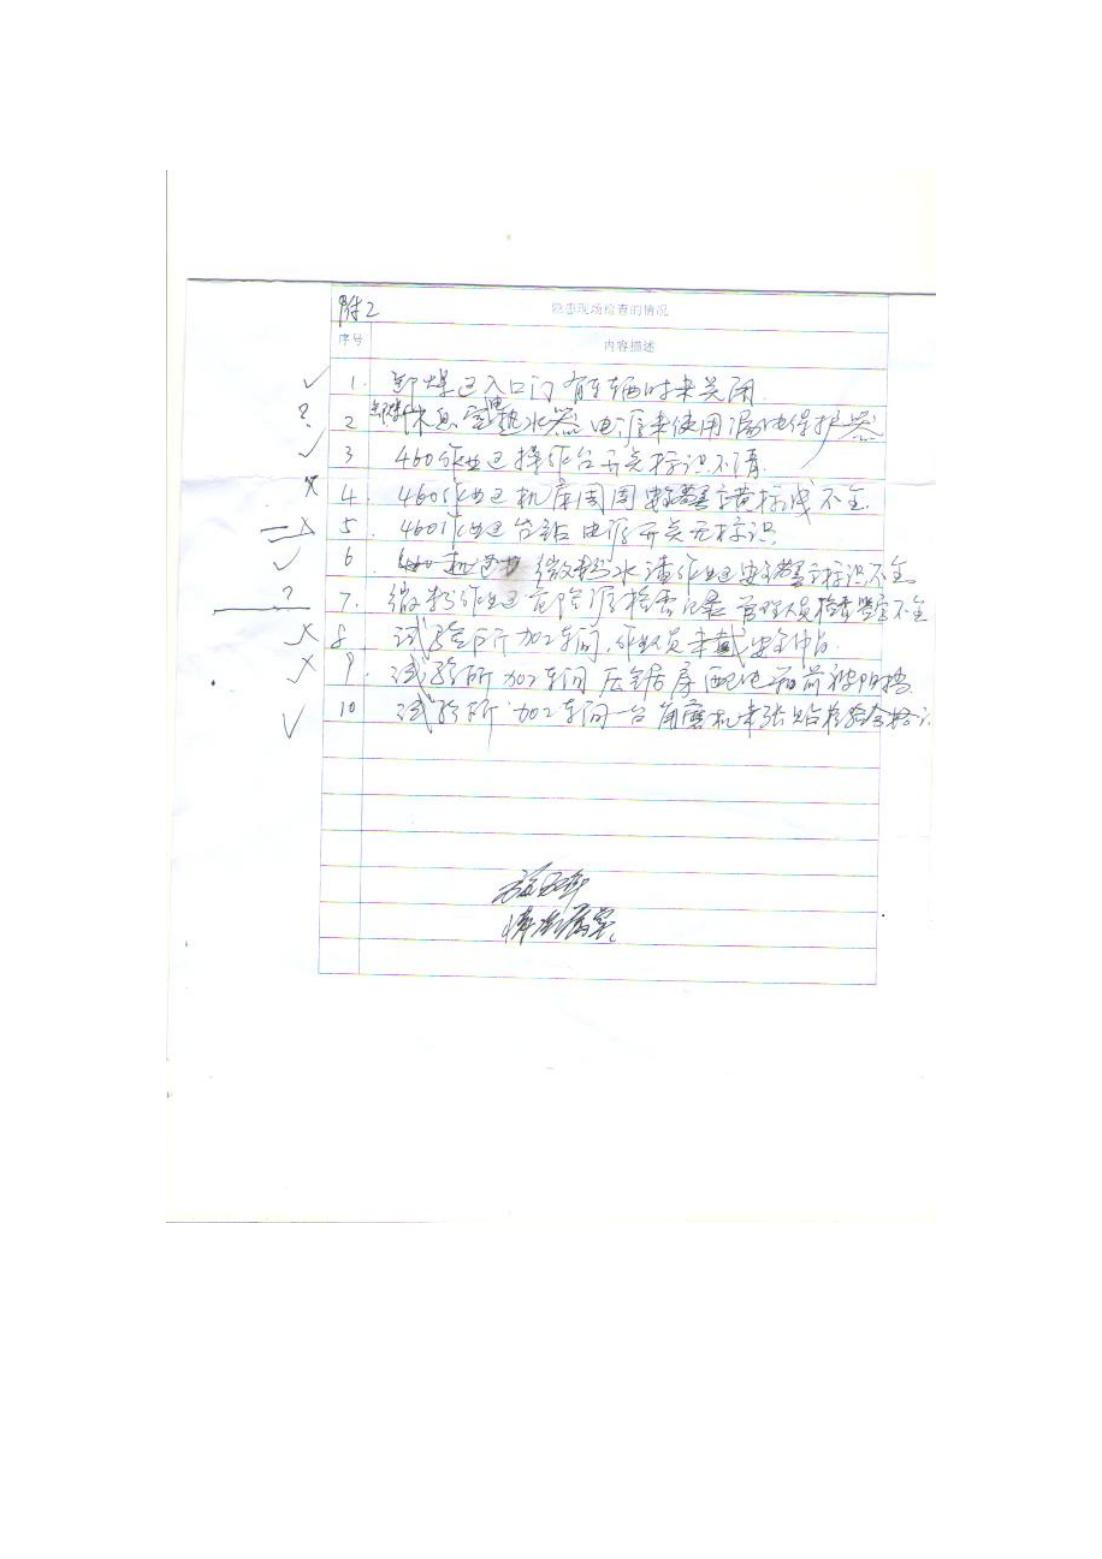 附2
隐患现场检查的情况
序号
内容描述
1. 卸煤区入口门有车辆时未关闭.
? 2 卸煤休息室电热水器电源未使用漏电保护器
3 460作业区操作台开关标识不清.
4. 460作业区机床周围安全警示黄标线不全.
5. 460作业区台钻电源开关无标识
6. 微粉水渣作业区安全警示标识不全
? 7. 微粉作业区危险源检查记录管理人员检查签字不全
8 试验所加工车间,作业人员未戴安全帽.
9. 试验所加工车间 锯房配电箱前被阻挡.
10. 试验所加工车间一台角磨机未张贴检验合格